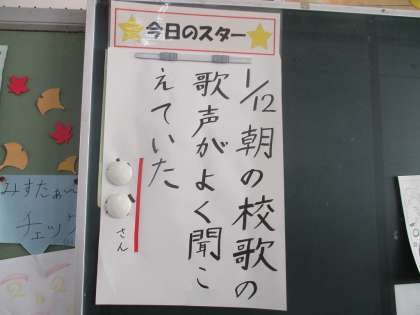 今日のスター
1/12 朝の校歌の
歌声がよく聞こ
えていた
さん
みすたぁ〜
チェック